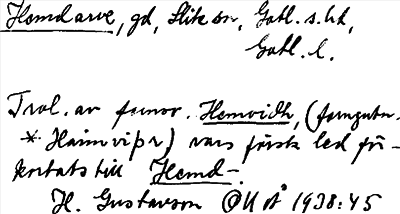 Hemdarve, gd, Slite sn, Gotl. s. hd,
Gotl. l.
Trol. av fornsv. Hemvidh, (forngutn.
* Haimviþr) vars förste led för-
kortats till Hemd-.
H. Gustavson OUÅ 1938:45